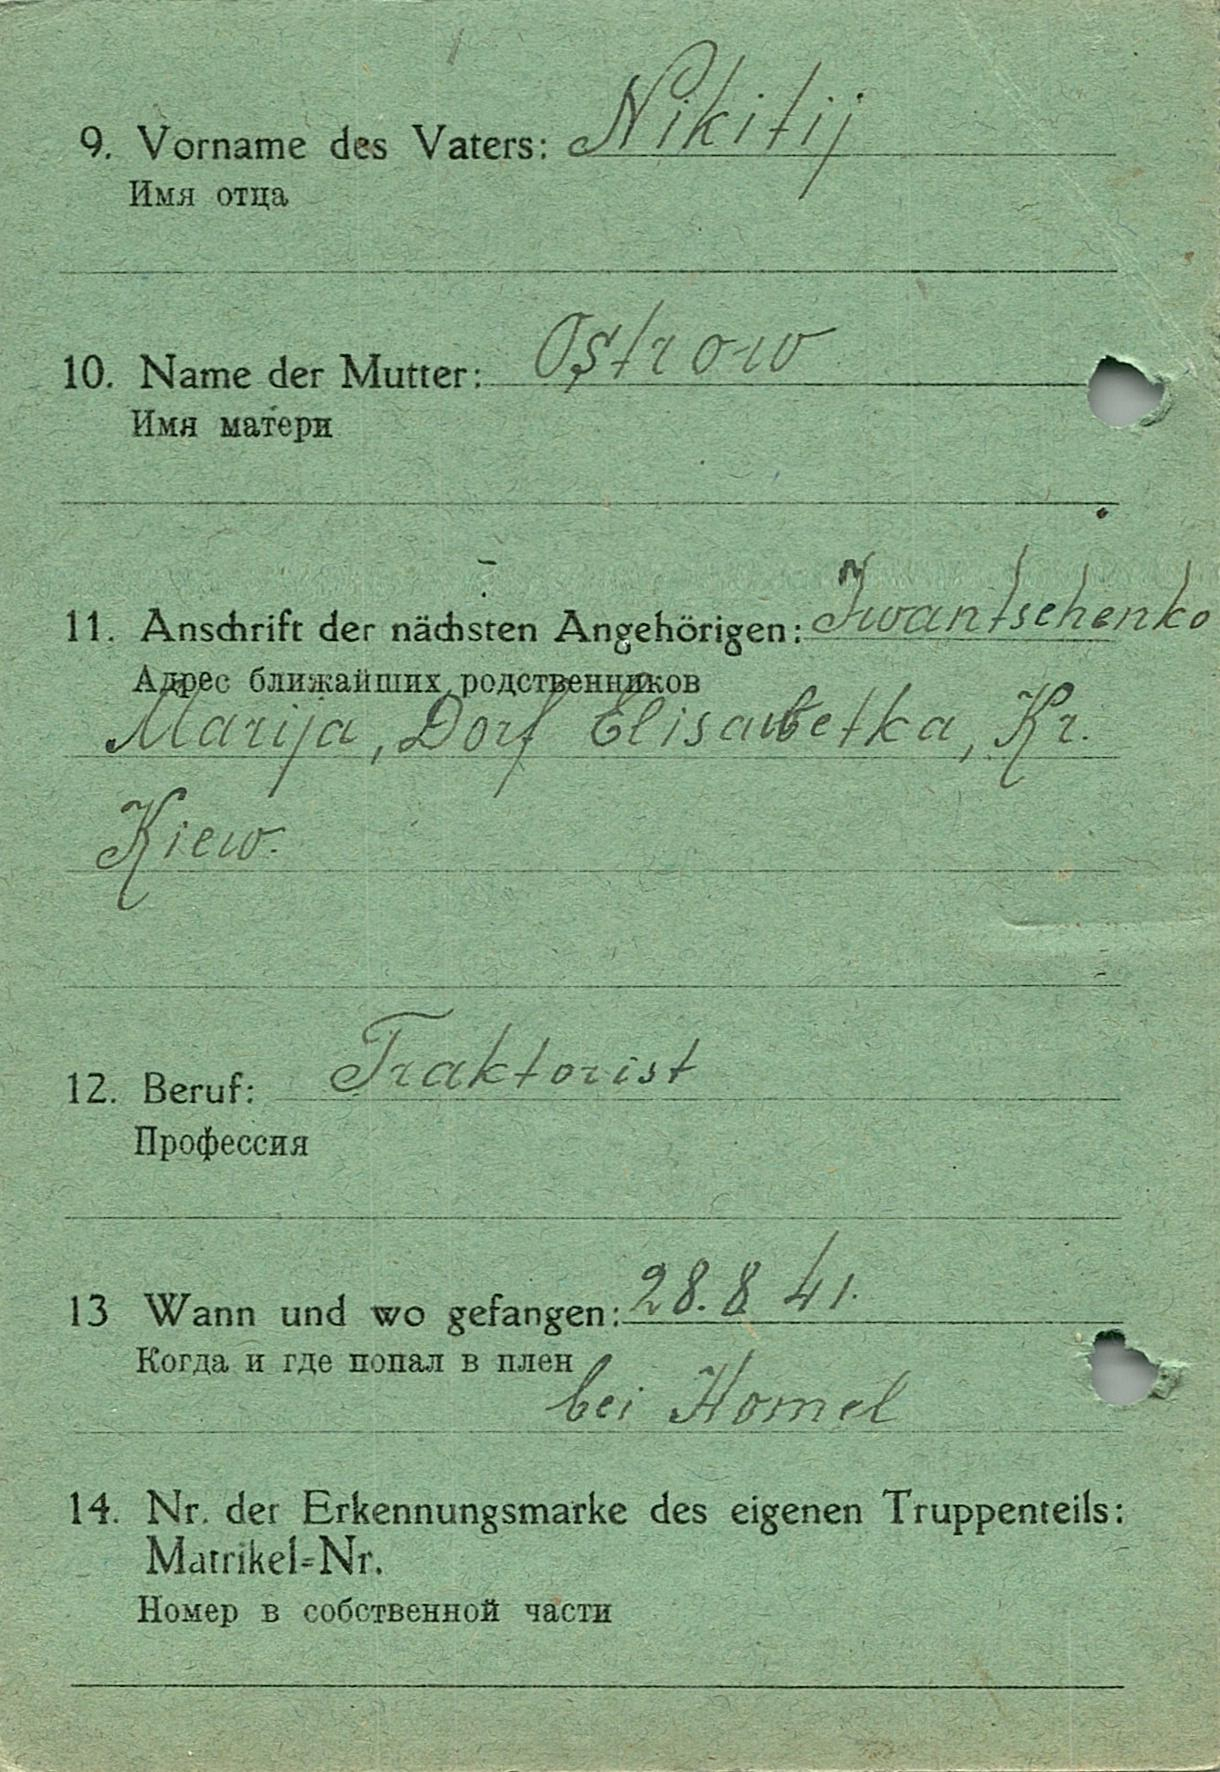 9. Vorname des Vaters: Nikitij
Имя отца
10. Name der Mutter: Ostrow
Имя матери
11. Anschrift der nächsten Angehörigen: Iwantschenko
Адрес ближайших родственников
Marija, Dorf Elisawetka, Kr.
Kiew.
12. Beruf: Traktorist
Профессия
13 Wann und wo gefangen: 28.8 41.
Когда и где попал в плен
bei Homel
14. Nr. der Erkennungsmarke des eigenen Truppenteils:
Matrikel-Nr.
Номер в собственной части